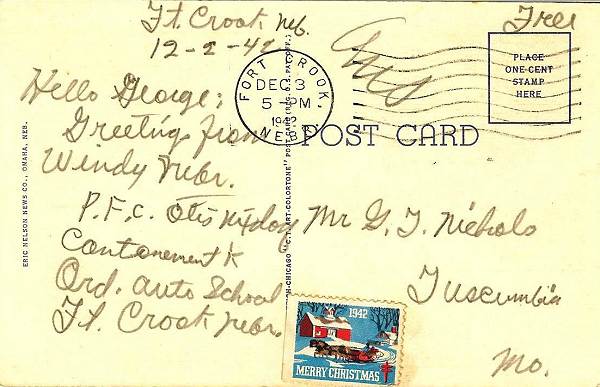 Ft. Crook Neb.
12-2-42
Free
FORT CROOK,
DEC 3
5-PM
1942
NEBR.
PLACE
ONE-CENT
STAMP
HERE
POST CARD
Hello George;
Greetings from
Windy Nebr.
P.F.C. Otis
Cantonement K
Ord. Auto School
Ft. Crook Nebr.
Mr G. T. Nichols
Tuscumbia
Mo.
ERIC NELSON NEWS CO., OMAHA, NEB.
CHICAGO "C.T. ART-COLORTONE" POST CARD (REG. U.S. PAT. OFF.)
1942
MERRY CHRISTMAS